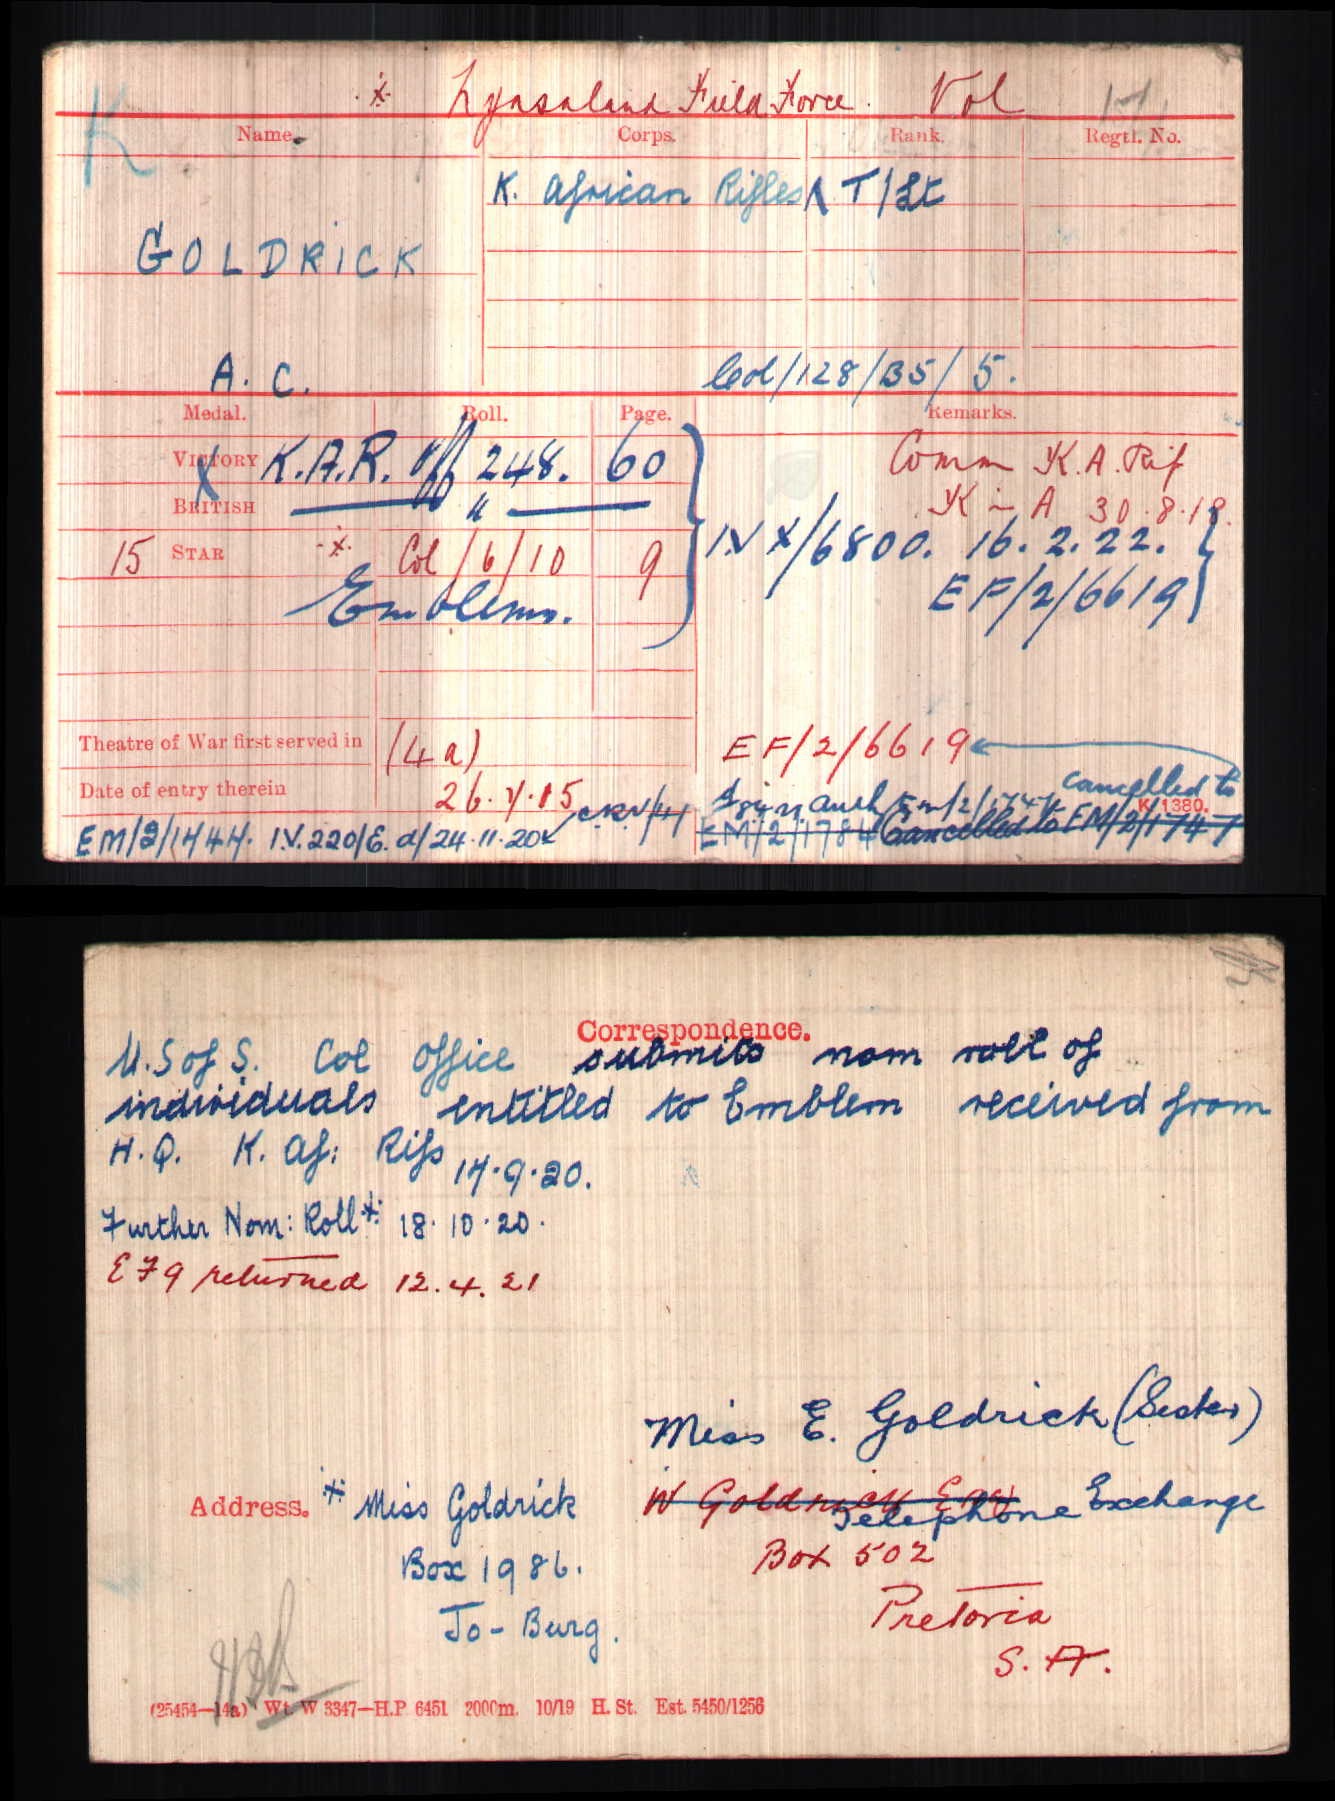 K
·x· Nyasaland Field Force. Vol 17.
Name. Corps. Rank. Regtl. No.
K. African Rifles T/Lt
GOLDRICK
A. C. Col/128/B5/5.
Medal. Roll. Page. Remarks.
VICTORY K.A.R. Off 248. 60 Comm K.A. Rif
X BRITISH " K in A 30.8.18.
15 STAR ·x· Col/6/10 9 I.V X/6800. 16.2.22.
Emblems. EF/2/6619
Theatre of War first served in (4a) EF/2/6619
Date of entry therein 26.7.15 cancelled to
K 1380.
EM/2/1444. I.V.220/E.d/24.11.20 EM/2/1784 Cancelled to EM/2/1747
Correspondence.
U.S of S. Col Office submits nom roll of
individuals entitled to Emblem received from
H.Q. K. Af: Rifs 14.9.20.
Further Nom: Roll x 18.10.20.
EF9 returned 12.4.21
Miss E. Goldrick (Sister)
W Goldrick Esq
Telephone Exchange
Box 502
Pretoria
S.A.
Address. x Miss Goldrick
Box 1986.
Jo-Burg.
(25454—14a) Wt. W 3347—H.P. 6451 2000m. 10/19 H. St. Est. 5450/1256